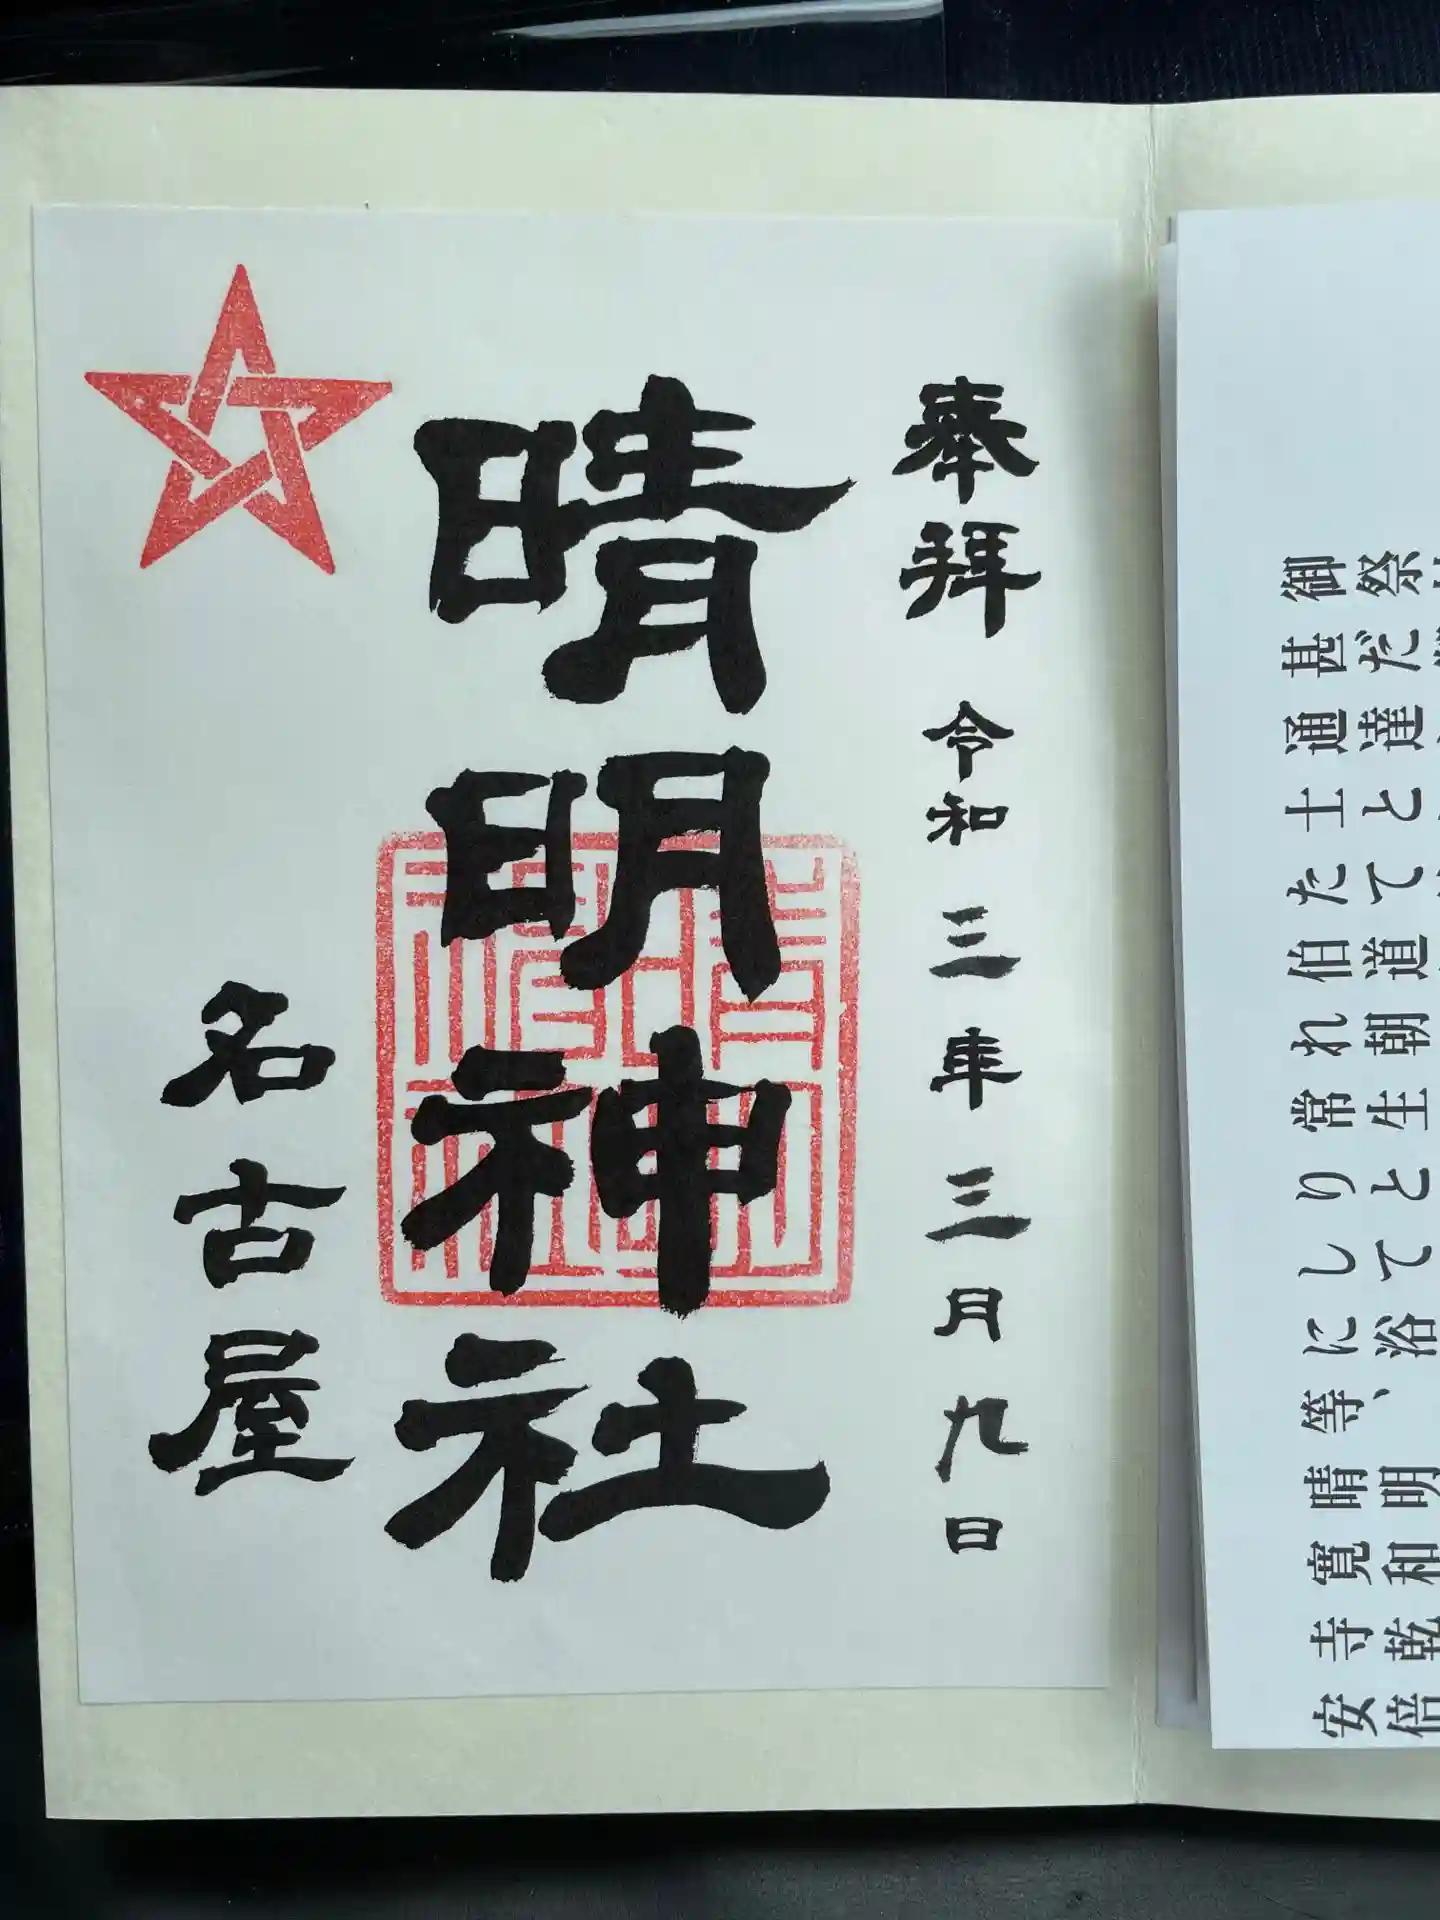 奉拝 令和三年三月九日
晴明神社
名古屋
御祭
甚だ
通達
士と
たて
伯道
れ朝
常生
りと
して
に浴
等、
晴明
寛和
寺乾
安倍